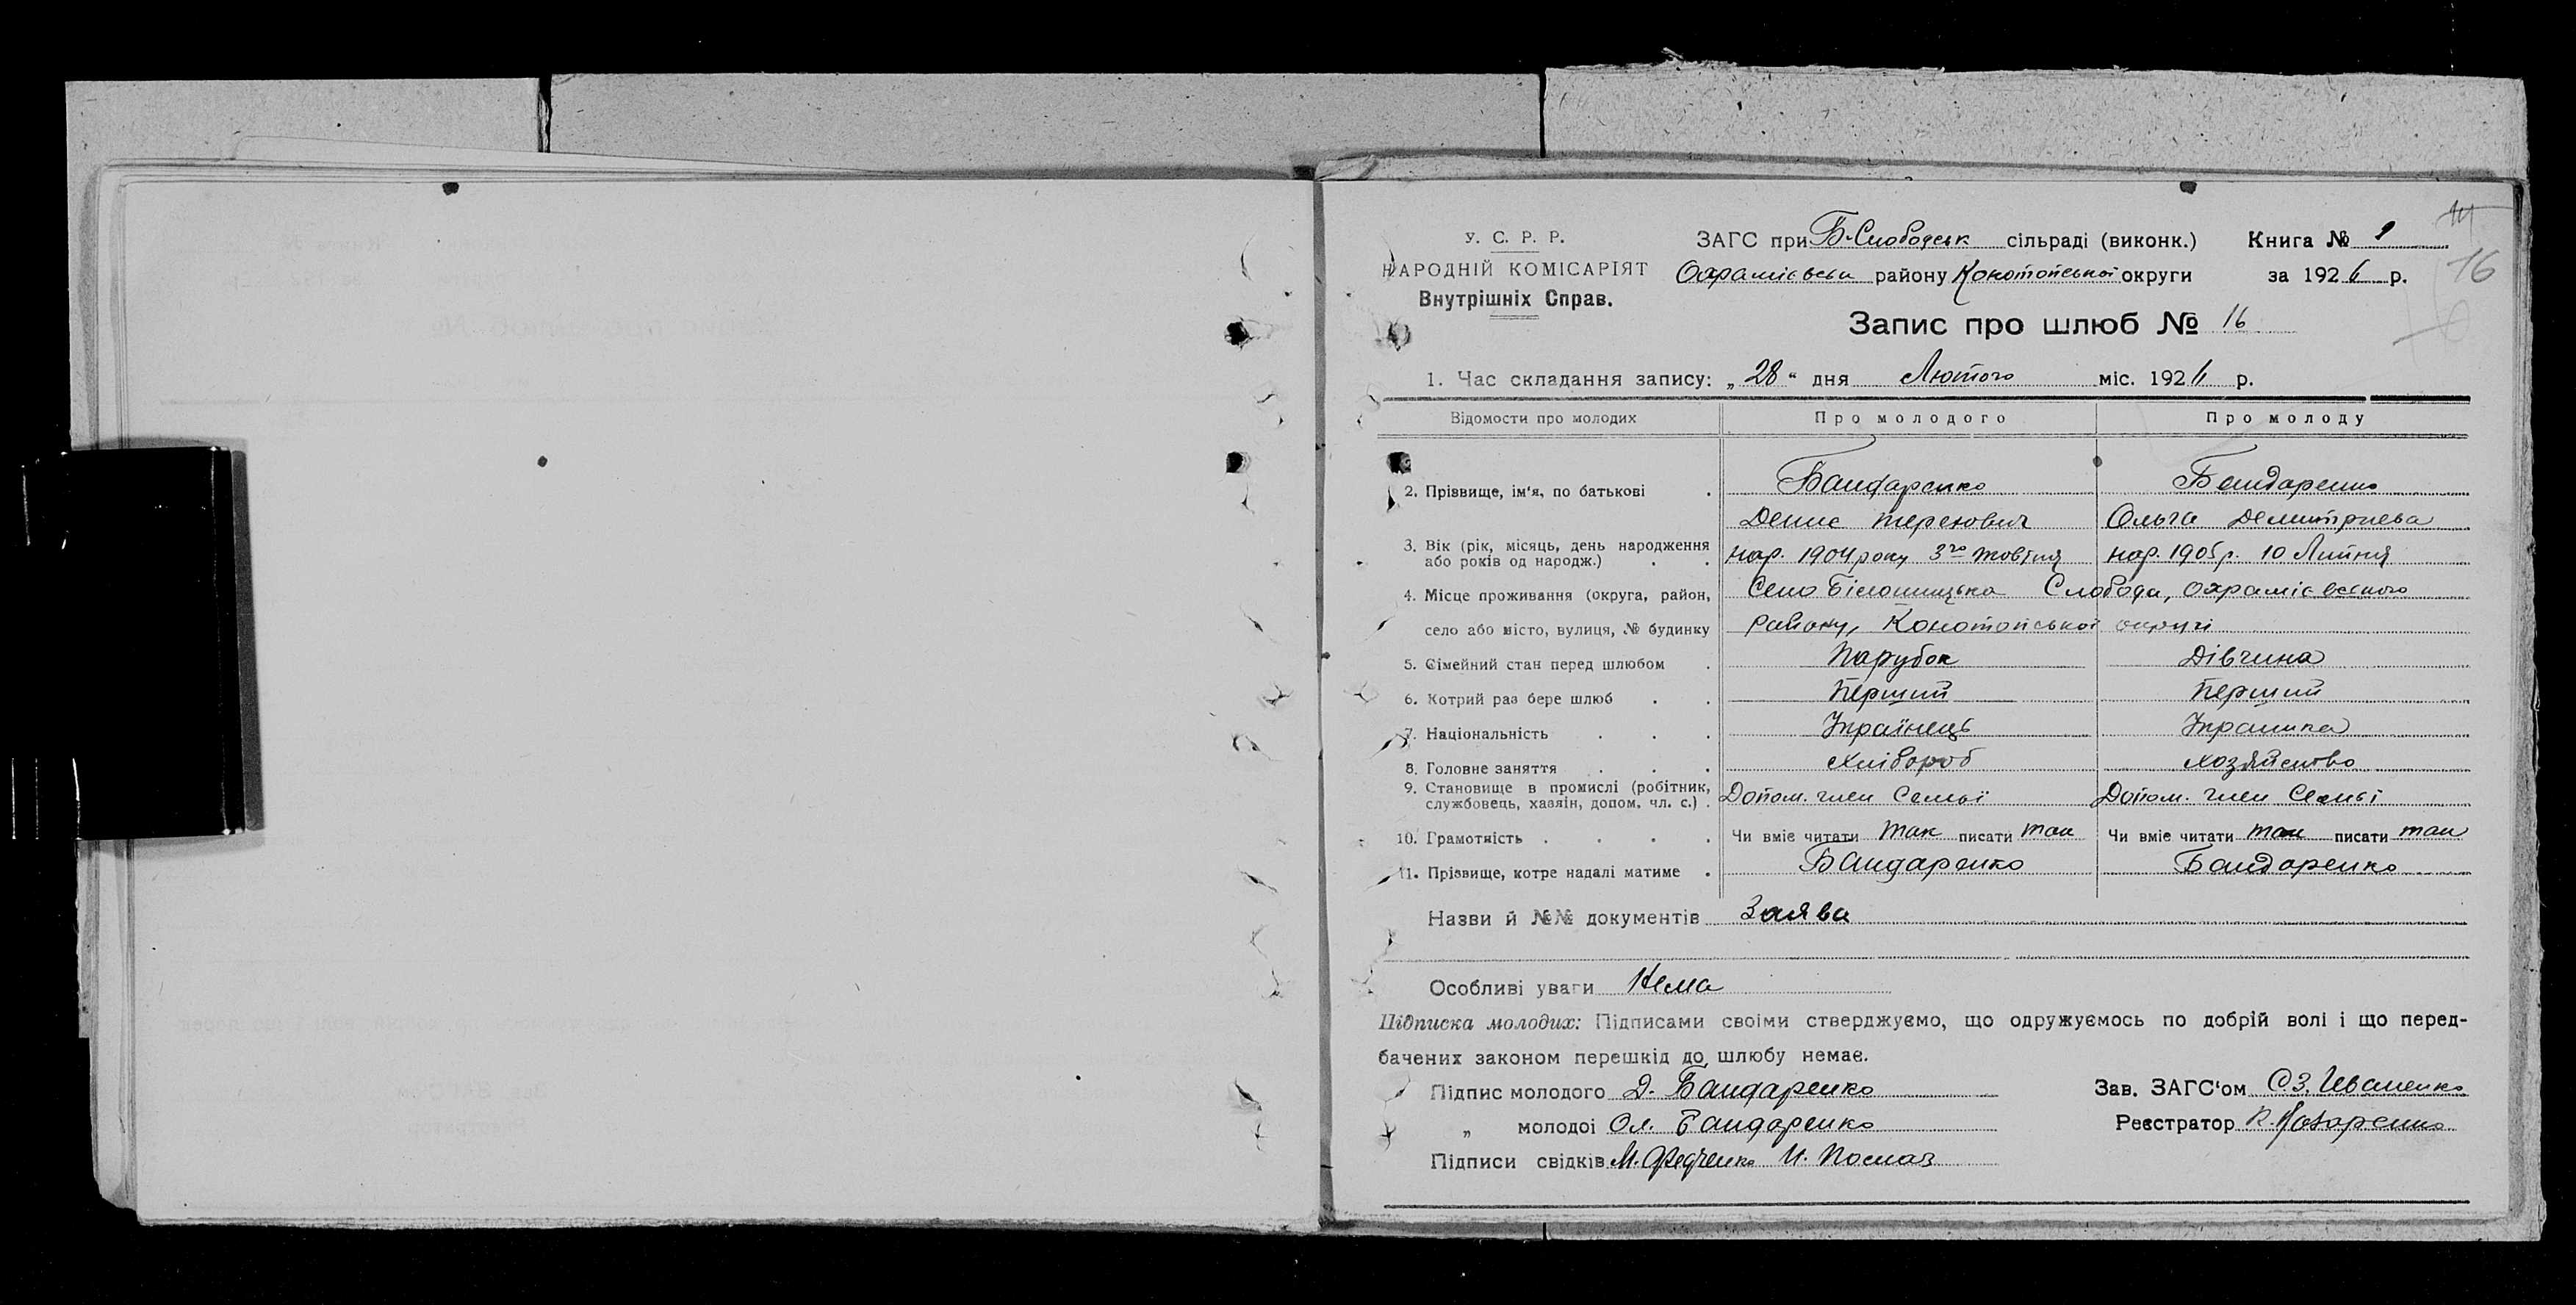 14
У. С. Р. Р. ЗАГС при Б-Слободськ сільраді (виконк.) Книга № 1
НАРОДНІЙ КОМІСАРІЯТ Охраміевськ району Конотопської округи за 1926 р. 16
Внутрішніх Справ.
Запис про шлюб № 16
1. Час складання запису: „28“ дня Лютого міс. 1926 р.
Відомости про молодих Про молодого Про молоду
2. Прізвище, ім'я, по батькові . Бандаренко Бандаренко
Денис Терехович Ольга Демитриева
3. Вік (рік, місяць, день народження нар. 1904 року 3го жовтня нар. 1905 р. 10 Липня
або років од народж.) . .
4. Місце проживання (округа, район, Село Білопницька Слобода, Охраміевського
село або місто, вулиця, № будинку району, Конотопської округи
5. Сімейний стан перед шлюбом . Парубок Дівчина
6. Котрий раз бере шлюб . . Перший Перший
7. Національність . . . Українець Украинка
8. Головне заняття . . . Хлібороб Хозяйство
9. Становище в промислі (робітник, Допом. член Семьї Допом. член Семьі
службовець, хазяїн, допом. чл. с.) .
10. Грамотність . . . . Чи вміє читати так писати так Чи вміє читати так писати так
11. Прізвище, котре надалі матиме . Бандаренко Бандаренко
Назви й №№ документів Заява
Особливі уваги Нема
Підписка молодих: Підписами своіми стверджуємо, що одружуємось по добрій волі і що перед-
бачених законом перешкід до шлюбу немає.
Підпис молодого Д. Бандаренко Зав. ЗАГС'ом С.З. Иваненко
„ молодоі Ол. Бандаренко Реєстратор Назаренко
Підписи свідків М. Федченко И.